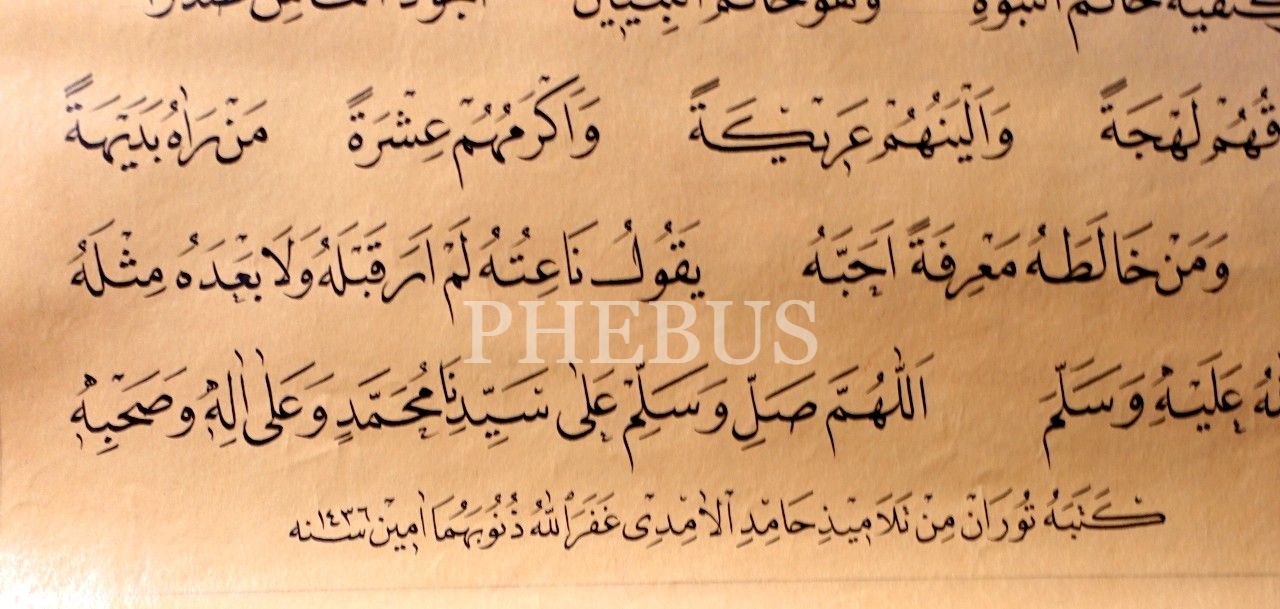 كتفيه خاتم النبوة وهو خاتم النبيين اجود الناس صدرا
قُهُمْ لَهْجَةً وَاَلْيَنُهُمْ عَرِيكَةً وَاَكْرَمُهُمْ عِشْرَةً مَنْ رَاٰهُ بَدِيَهَةً
وَمَنْ خَالَطَهُ مَعْرِفَةً اَحَبَّهُ يَقُولُ نَاعِتُهُ لَمْ اَرَ قَبْلَهُ وَلَا بَعْدَهُ مِثْلَهُ
عَلَيْهِ وَسَلَّمَ اَللّٰهُمَّ صَلِّ وَسَلِّمْ عَلٰى سَيِّدِنَا مُحَمَّدٍ وَعَلٰى اٰلِهِ وَصَحْبِهِ
PHEBUS
كَتَبَهُ تُورَانْ مِنْ تَلَامِيذِ حَامِدِ الْاٰمِدِى غَفَرَ اللّٰهُ ذُنُوبَهُمَا اٰمِينْ سنه ١٤٣٦